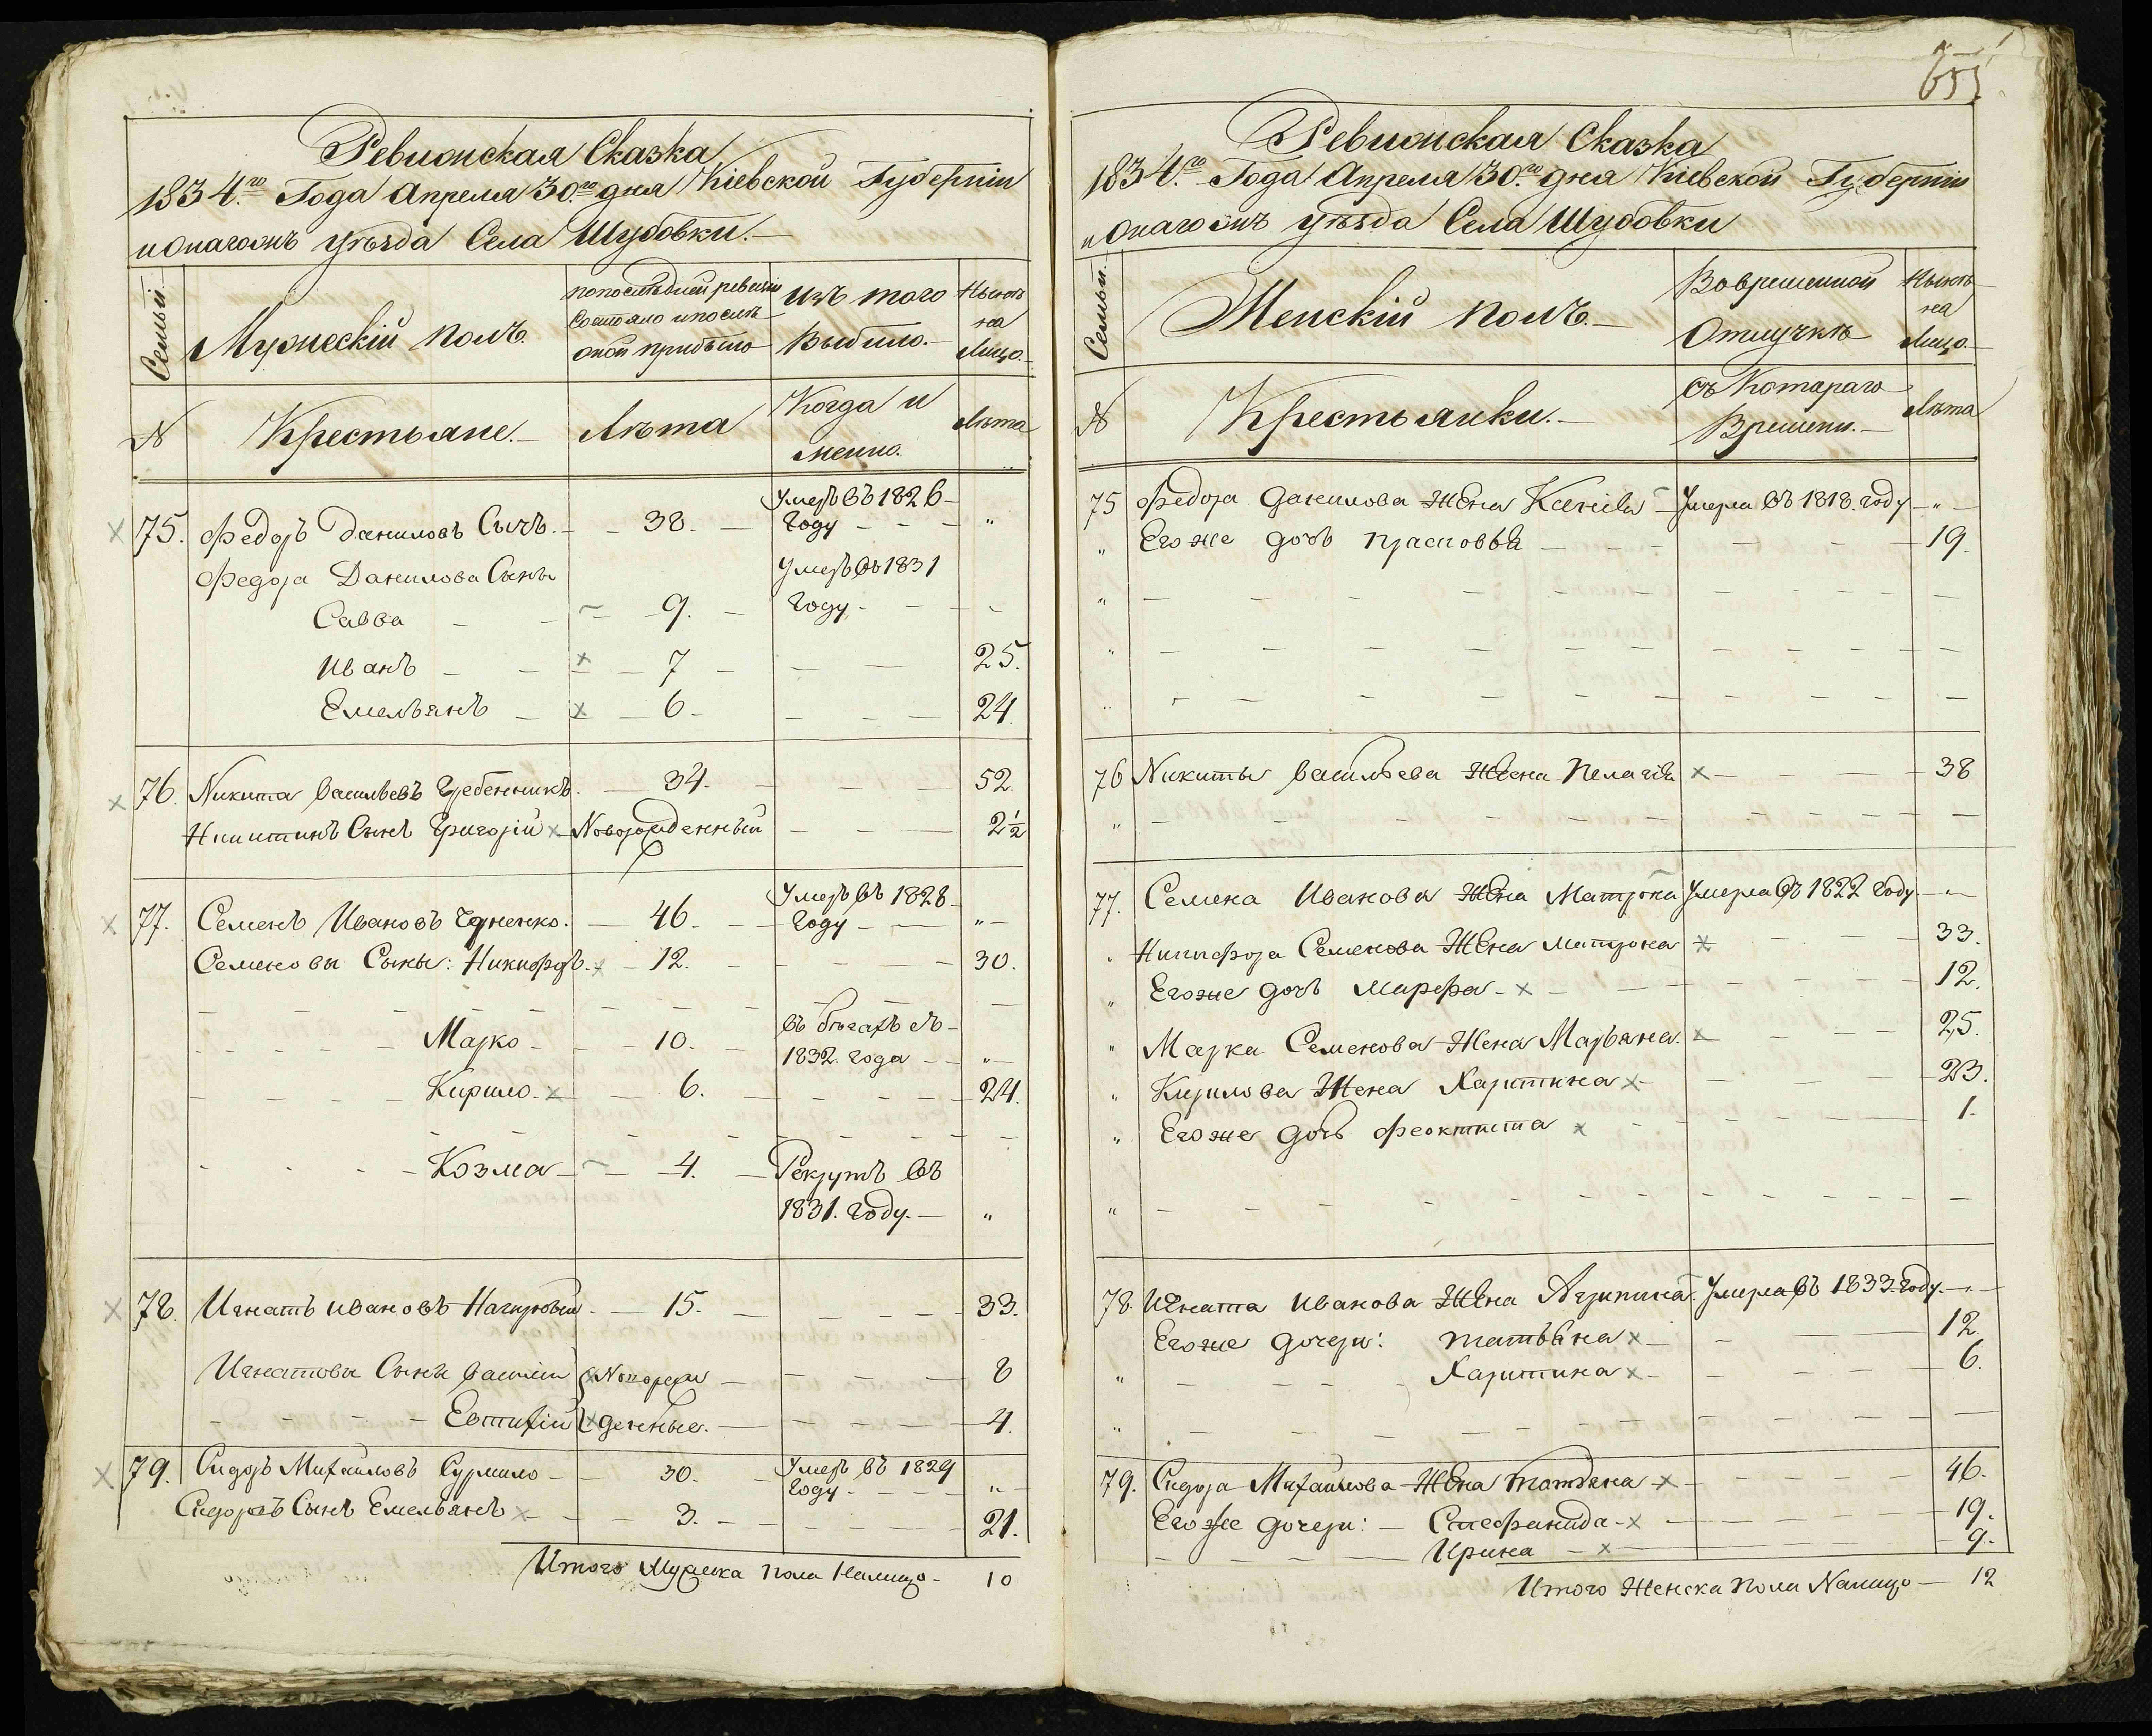 Ревизская Сказка
1834.го Года Апреля 30.го дня Кіевской Губерніи
и Онагожъ уѣзда Села Шубовки.
Семьи.
Мужескій полъ.
по последней ревизіи
состояло и послѣ
оной прибыло
Изъ того
Выбыло.
Нынѣ
на
Лицо.
№
Крестьяне.
Лѣта
Когда и
менно.
Лѣта
75. Федоръ Даниловъ Сычъ. 38. Умеръ въ 1826
Году "
Федора Данилова Сыны Умеръ въ 1831
Савва 9. Году
Иванъ × 7 25.
Емельянъ × 6 24.
76. Никита Васильевъ Гребенникъ. 34. 52.
Никитинъ Сынъ Григорій × Новорожденный 2½
77. Семенъ Ивановъ 46. Умеръ въ 1828
Году "
Семеновы Сыны: Никифоръ × 12. 30.
Марко 10. въ бѣгахъ съ
1832. года "
Кирило × 6. 24.
Козма 4. Рекрутъ въ
1831. Году. "
78. Игнатъ Ивановъ 15. 33.
Игнатовы Сыны Василій × Новорож 8
Евтихій × денные. 4.
79. Сидоръ Михайловъ Сурмило 30. Умеръ въ 1829
Году "
Сидоровъ Сынъ Емельянъ × 3. 21.
Итого Мужеска пола Налицо 10
651
Ревизская Сказка
1834.го Года Апреля 30.го дня Кіевской Губерніи
и Онагожъ уѣзда Села Шубовки
Семьи.
Женскій полъ.
Во временной
Отлучкѣ
Нынѣ
на
Лицо.
№
Крестьянки.
Съ Котораго
Времени.
Лѣта
75 Федора Данилова Жена Ксенія Умерла въ 1818. году "
" Его же дочь Прасковья 19.
76 Никиты Васильева Жена Пелагія × 38
77. Семена Иванова Жена Матрона Умерла въ 1822 Году.
Никифора Семенова Жена Матрона × 33.
" Его же дочь Марфа × 12.
" Марка Семенова Жена Марьяна. × 25.
" Кирилова Жена Харитина × 23.
" Его же дочь Феоктиста × 1.
78. Игната Иванова Жена Агрипина. Умерла въ 1833. году.
Его же дочери: Татьяна × 12
" Харитина × 6.
79. Сидора Михайлова Жена Татьяна × 46.
Его же дочери: Степанида × 19.
Ирина × 9.
Итого Женска пола Налицо 12